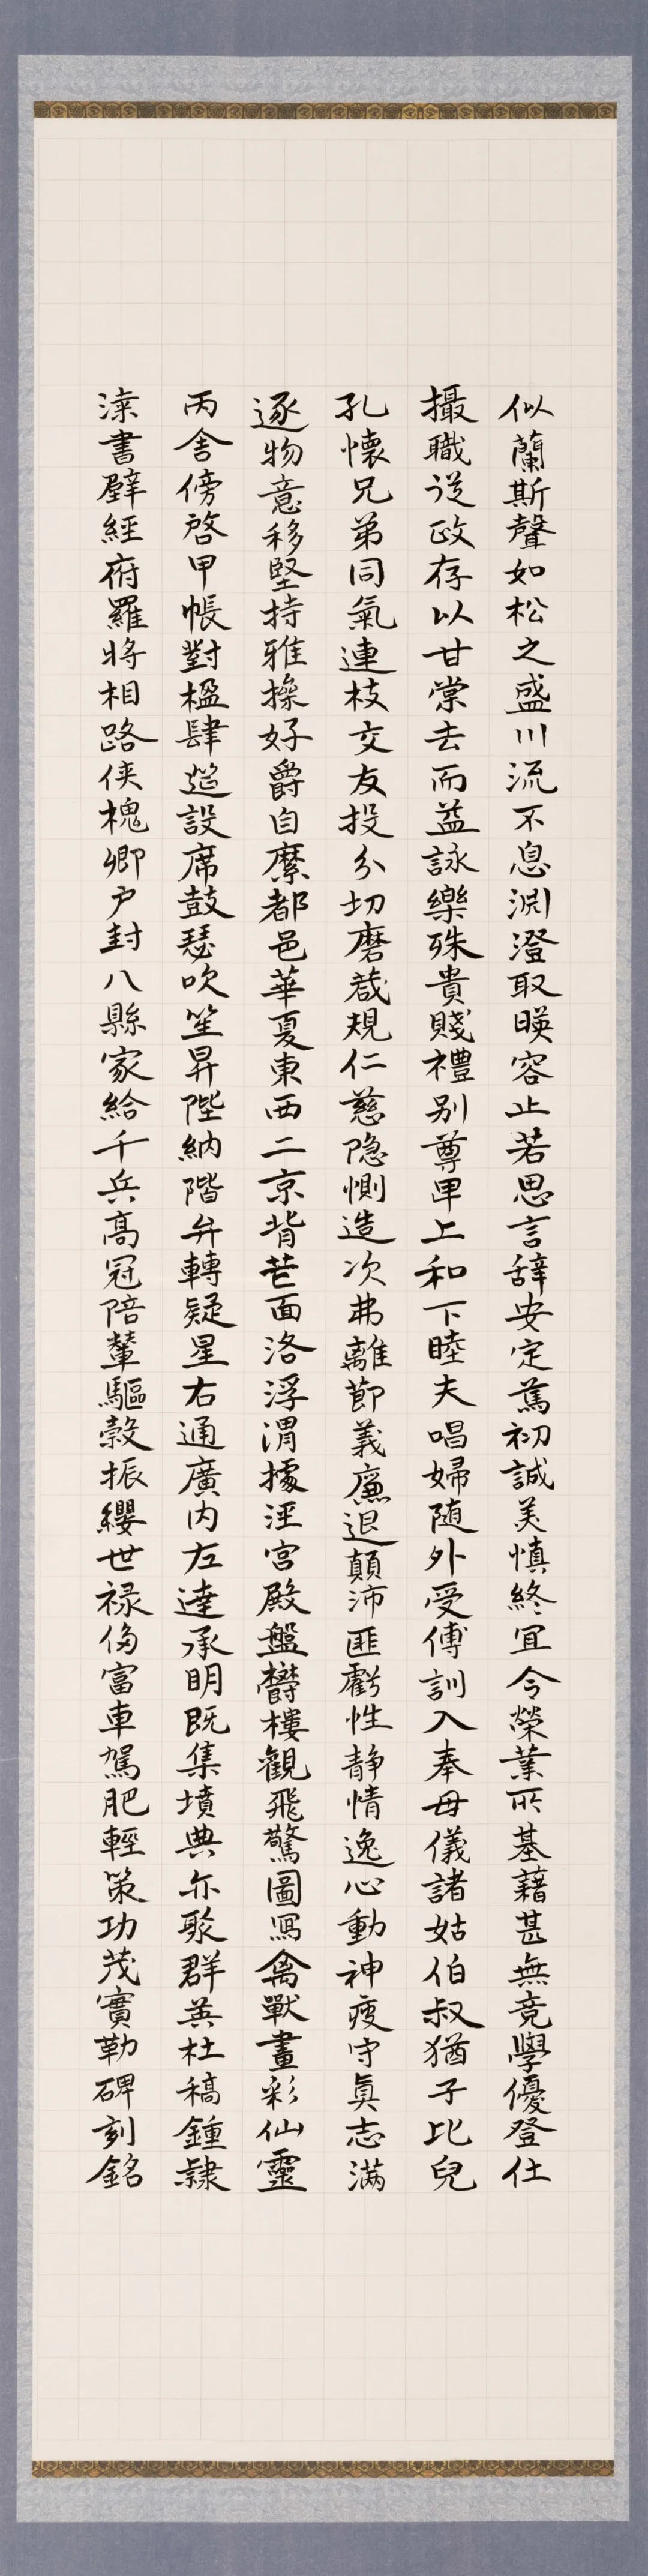 似蘭斯馨如松之盛川流不息淵澄取暎容止若思言辞安定篤初誠美慎終宜令榮業所基藉甚無竟學優登仕
攝職従政存以甘棠去而益詠樂殊貴賤禮別尊卑上和下睦夫唱婦随外受傅訓入奉母儀諸姑伯叔猶子比兒
孔懐兄弟同氣連枝交友投分切磨葴規仁慈隐惻造次弗離節義廉退顛沛匪虧性静情逸心動神疲守真志満
逐物意移堅持雅操好爵自縻都邑華夏東西二京背芒面洛浮渭據涇宮殿盤欝樓觀飛驚圖寫禽獸畫彩仙靈
丙舍傍啓甲帳對楹肆筵設席鼓瑟吹笙昇陛納階弁轉疑星右通廣内左達承明既集墳典亦聚群英杜稿鍾隷
漆書壁經府羅将相路侠槐卿户封八縣家給千兵高冠陪輦驅轂振纓世禄侈富車駕肥輕策功茂實勒碑刻銘